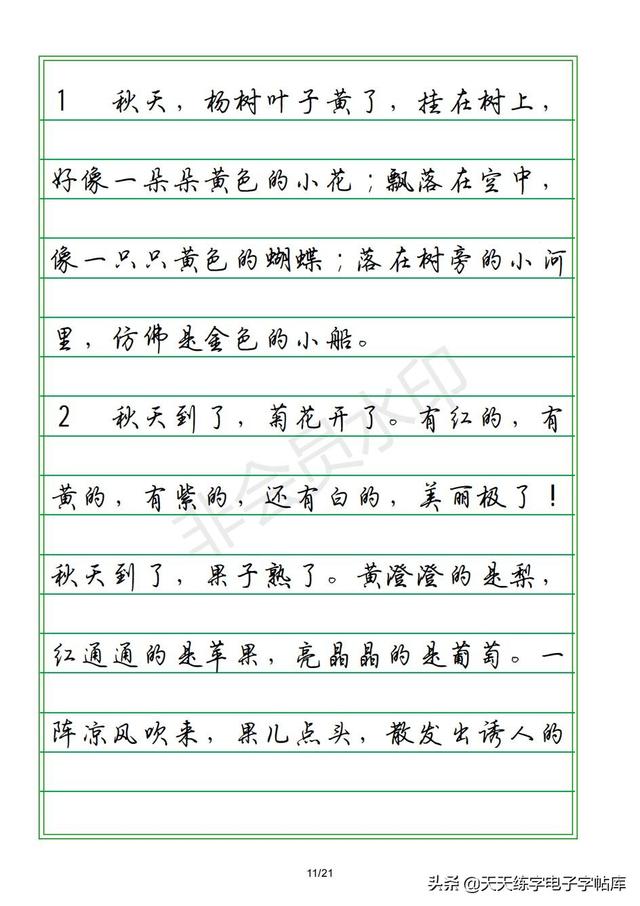 1 秋天，杨树叶子黄了，挂在树上，
好像一朵朵黄色的小花；飘落在空中，
像一只只黄色的蝴蝶；落在树旁的小河
里，仿佛是金色的小船。
2 秋天到了，菊花开了。有红的，有
黄的，有紫的，还有白的，美丽极了！
秋天到了，果子熟了。黄澄澄的是梨，
红通通的是苹果，亮晶晶的是葡萄。一
阵凉风吹来，果儿点头，散发出诱人的
非会员水印
11/21
头条 @天天练字电子字帖库